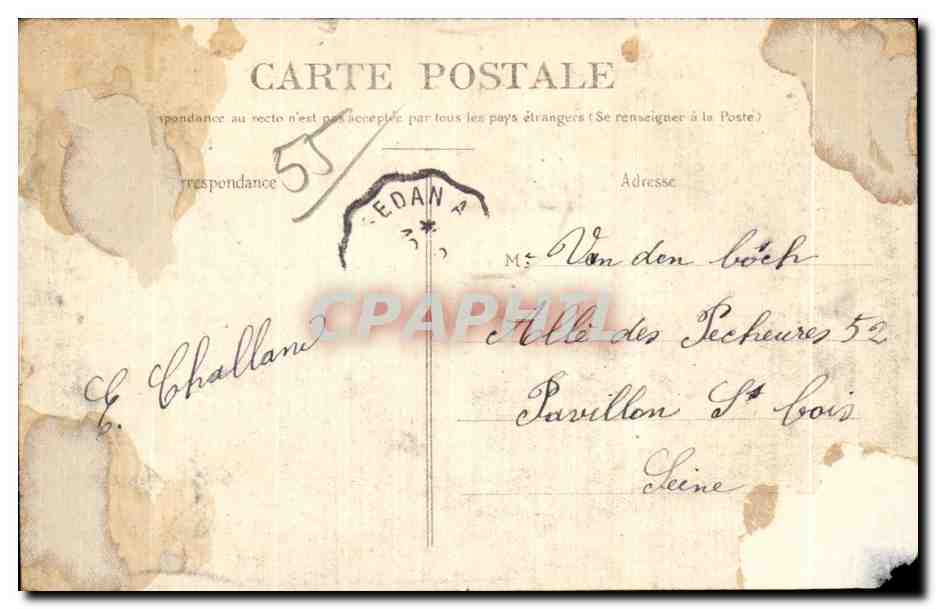 CARTE POSTALE
spondance au recto n'est pas acceptée par tous les pays étrangers (Se renseigner à la Poste)
rrespondance
55
Adresse
EDAN A
Mr. Van den böch
CPAPHIL
Allé des Pecheures 52
E. Challand
Pavillon St bois
Seine